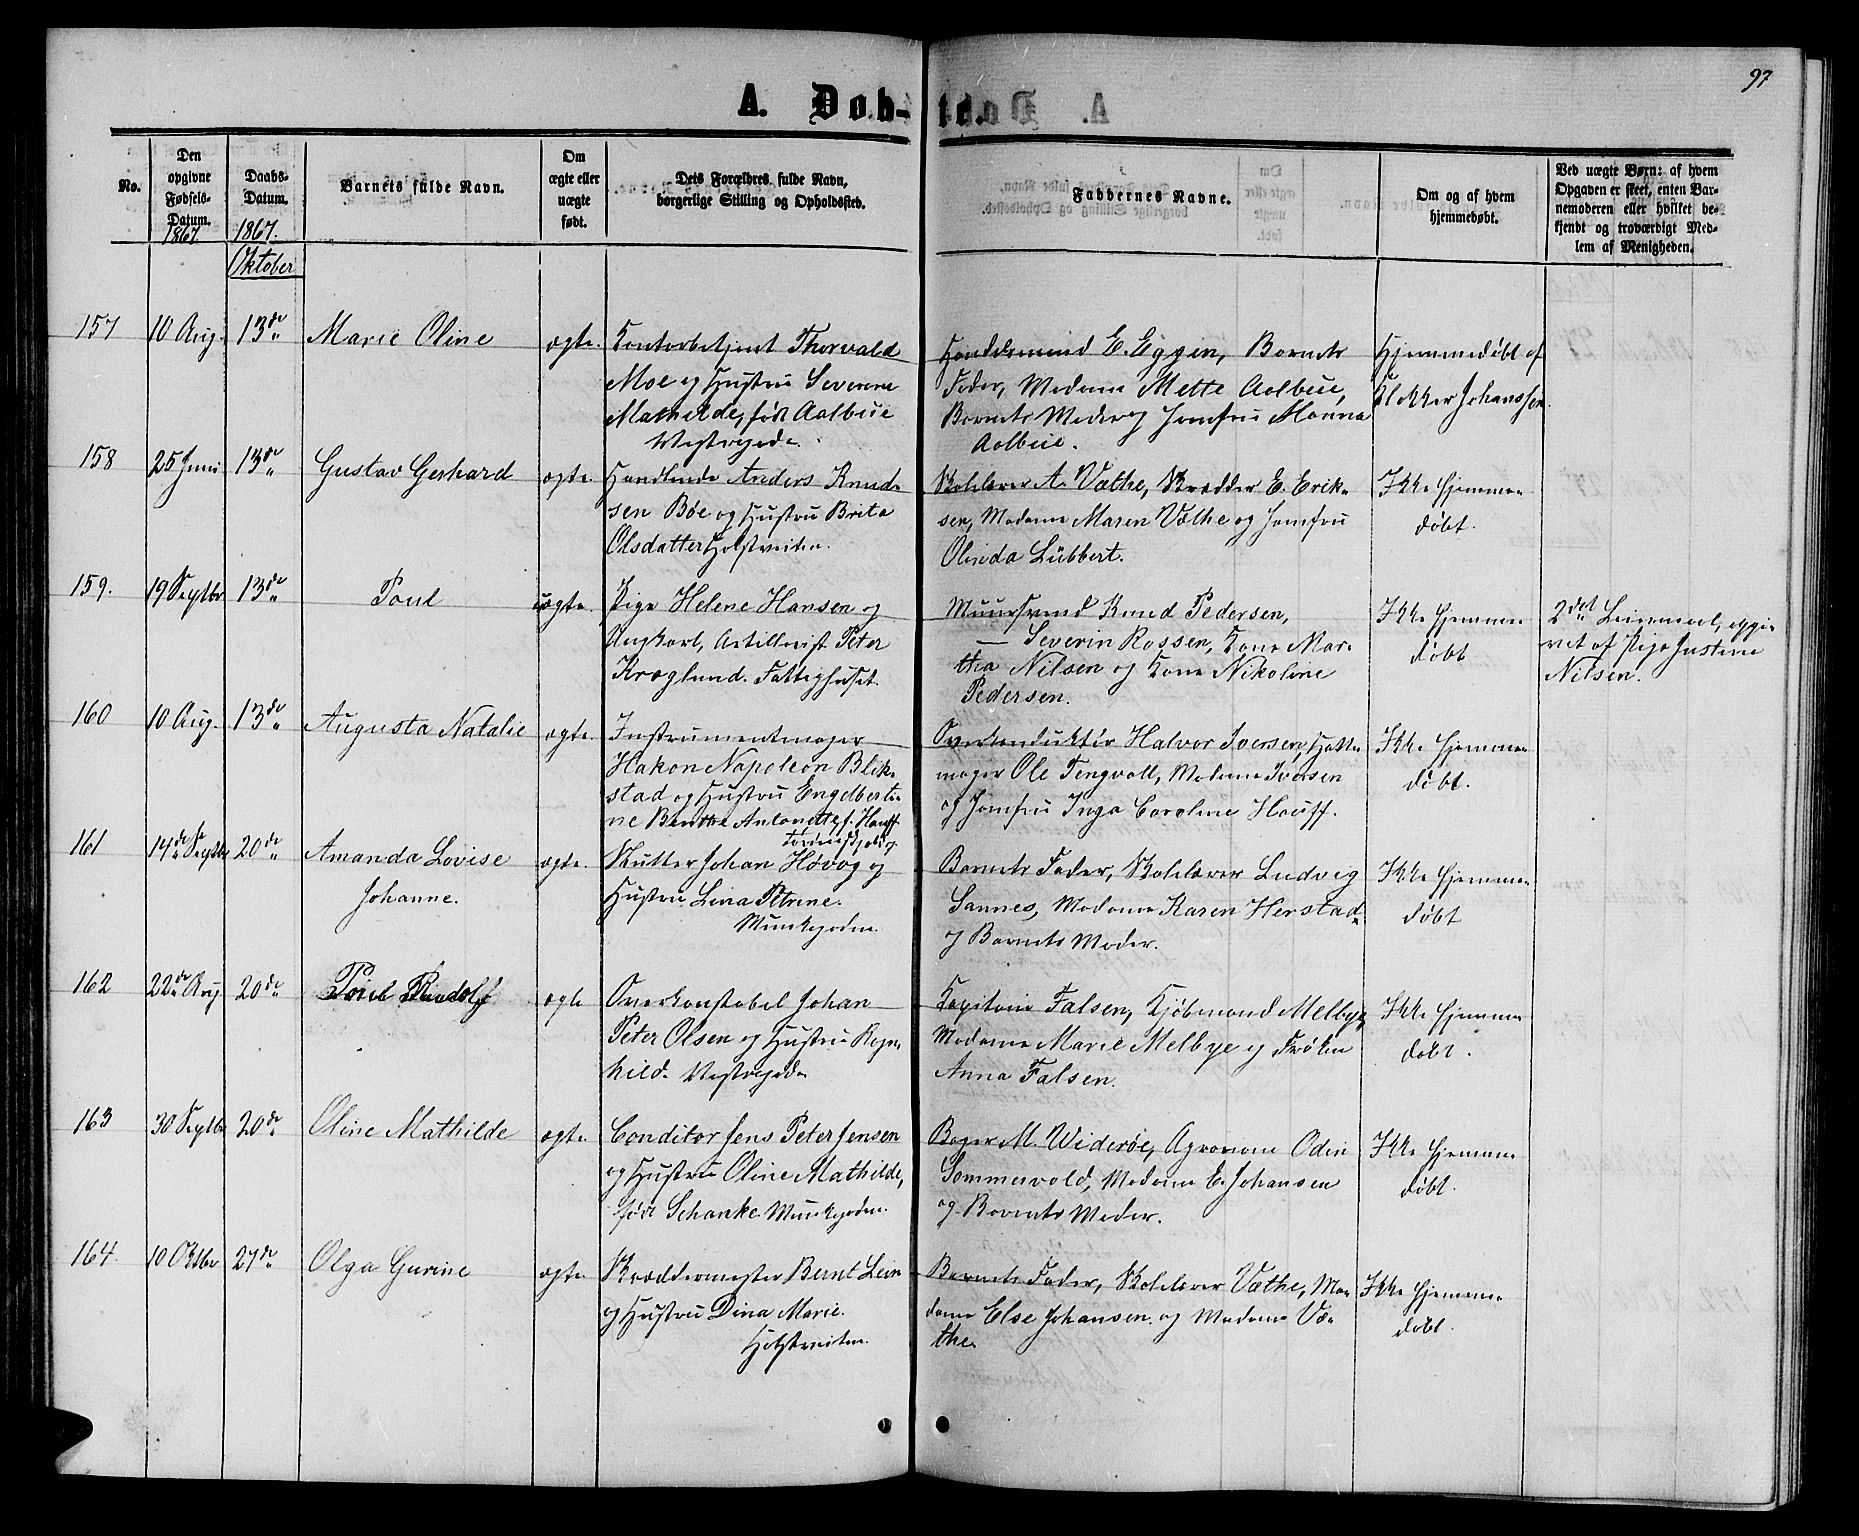 97
A. Døb-te.
No.
Den opgivne Fødsels-Datum. 1867
Daabs-Datum. 1867.
Barnets fulde Navn.
Om ægte eller uægte født.
Dets Forældres fulde Navn, borgerlige Stilling og Opholdssted.
Faddernes Navne.
Om og af hvem hjemmedøbt.
Ved uægte Børn: af hvem
Opgaven er skeet, enten Bar-
nemoderen eller hvilket be-
kjendt og troværdigt Med-
lem af Menigheden.
Oktober
157 10 Aug. 13de Marie Oline ægte.
Kontorbetjent Thorvald
Moe og Hustru Severine
Mathilde, født Aalbue
Vestregade.
Handelsmand E. Eggen, Barnets
Fader, Madame Mette Aalbue,
Barnets Moder og Jomfru Hanna
Aalbue.
Hjemmedøbt af
Klokker Johanssen.
158 25 Juni 13de Gustav Gerhard ægte.
Handlende Anders Knud-
sen Bøe og Hustru Brita
Olsdatter Holstveiten.
Skolelærer A. Væthe, Skrædder E. Erik-
sen, Madame Maren Væthe og Jomfru
Olinda Lübbert.
Ikke hjemme-
døbt.
159. 19 Septbr 13de Poul uægte.
Pige Helene Hansen og
Ungkarl, Artillerist Peter
Kroglund. Fattighuset.
Muursvend Knud Pedersen,
— Severin Rossen, Kone Mar-
tha Nilsen og Kone Nikoline
Pedersen.
Ikke hjemme-
døbt
2det Leiermaal, opgi-
vet af Pige Justine
Nilsen.
160 10 Aug. 13de Augusta Natalie ægte.
Instrumentmager
Hakon Napoleon Blik-
stad og Hustru Engelberti-
ne Benthe Antonette f. Hauff
Overkonduktør Halvor Iversen, Hatte-
mager Ole Tengvall, Madame Iversen
og Jomfru Inga Caroline Hauff.
Ikke hjemme-
døbt.
161 14de Septbr 20de Amanda Lovise
Johanne.
ægte.
Skutter Johan Høvog og
Hustru Lina Petrine.
Munkegaden.
Barnets Fader, Skolelærer Ludvig
Sannes, Madame Karen Herstad
og Barnets Moder.
Ikke hjemme-
døbt
162 22de Aug 20de Poul Rudolf ægte
Overkonstabel Johan
Peter Olsen og Hustru Ragn-
hild. Vestregade
Kaptein Falsen, Kjøbmand Melbye,
Madame Marie Melbye og Frøken
Anna Falsen.
Ikke hjemme-
døbt.
163 30 Septbr 20de Oline Mathilde ægte.
Conditor Jens Peter Jensen
og Hustru Oline Mathilde,
født Schanke Munkegaden.
Bager M. Widerøe, Agronom Odin
Sommervold, Madame E. Johansen
og Barnets Moder.
Ikke hjemme-
døbt.
164. 10 Oktbr 27de Olga Gurine ægte.
Skræddermester Bernt Lein
og Hustru Dina Marie.
Holstveiten.
Barnets Fader, Skolelærer Væthe, Ma-
dame Else Johansen og Madame Væ-
the.
Ikke hjemme-
døbt.